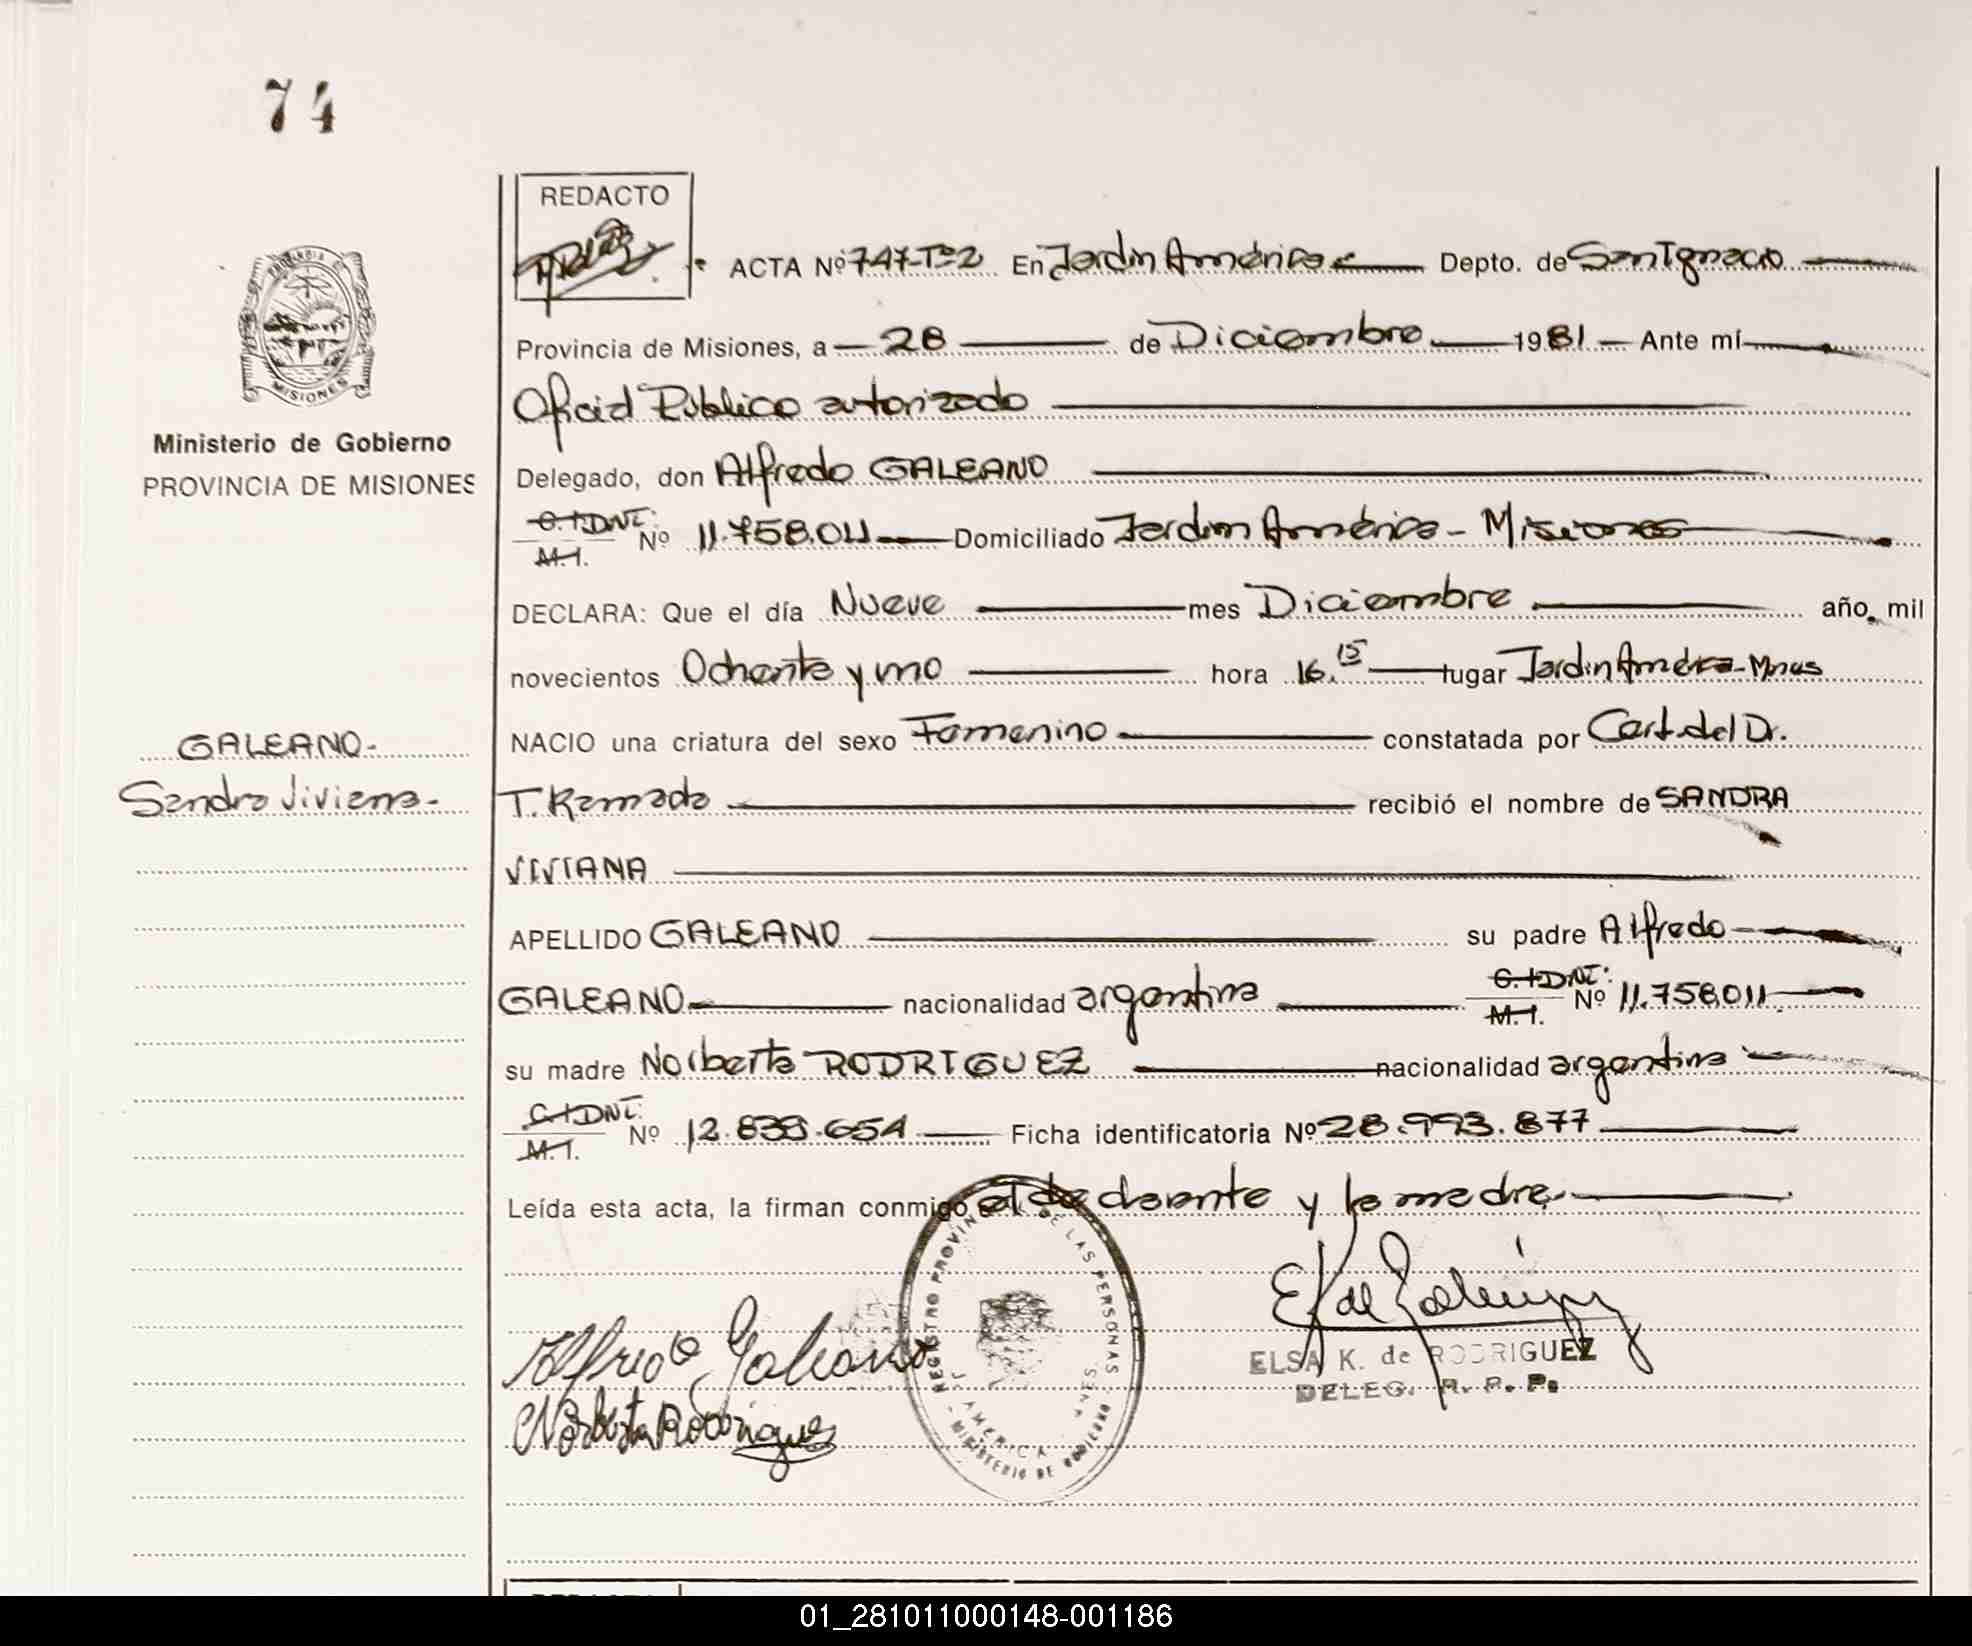 74
REDACTO
ACTA Nº 747-Tº2 En Jardín América Depto. de San Ignacio
PROVINCIA DE
MISIONES
Provincia de Misiones, a 28 de Diciembre 1981 Ante mí
Oficial Público autorizado
Ministerio de Gobierno
PROVINCIA DE MISIONES
Delegado, don Alfredo GALEANO
C.I DNI: M.I. Nº 11.758.011 Domiciliado Jardín América - Misiones
DECLARA: Que el día Nueve mes Diciembre año, mil
novecientos Ochenta y uno hora 16.15 lugar Jardín América-Mnes
GALEANO-
NACIO una criatura del sexo Femenino constatada por Cert. del Dr.
Sandra Viviana-
T. Ramada recibió el nombre de SANDRA
VIVIANA
APELLIDO GALEANO su padre Alfredo
GALEANO nacionalidad argentina C.I DNI: M.I. Nº 11.758.011
su madre Norberta RODRIGUEZ nacionalidad argentina
C.I DNI: M.I. Nº 12.838.654 Ficha identificatoria Nº 28.993.877
Leída esta acta, la firman conmigo el declarante y la madre.
REGISTRO PROVIN DE LAS PERSONAS
AMERICA
MINISTERIO DE GOBIERNO
Alfredo Galeano
Norberta Rodriguez
E K de Rodriguez
ELSA K. de RODRIGUEZ
DELEG. R. P. P.
01_281011000148-001186